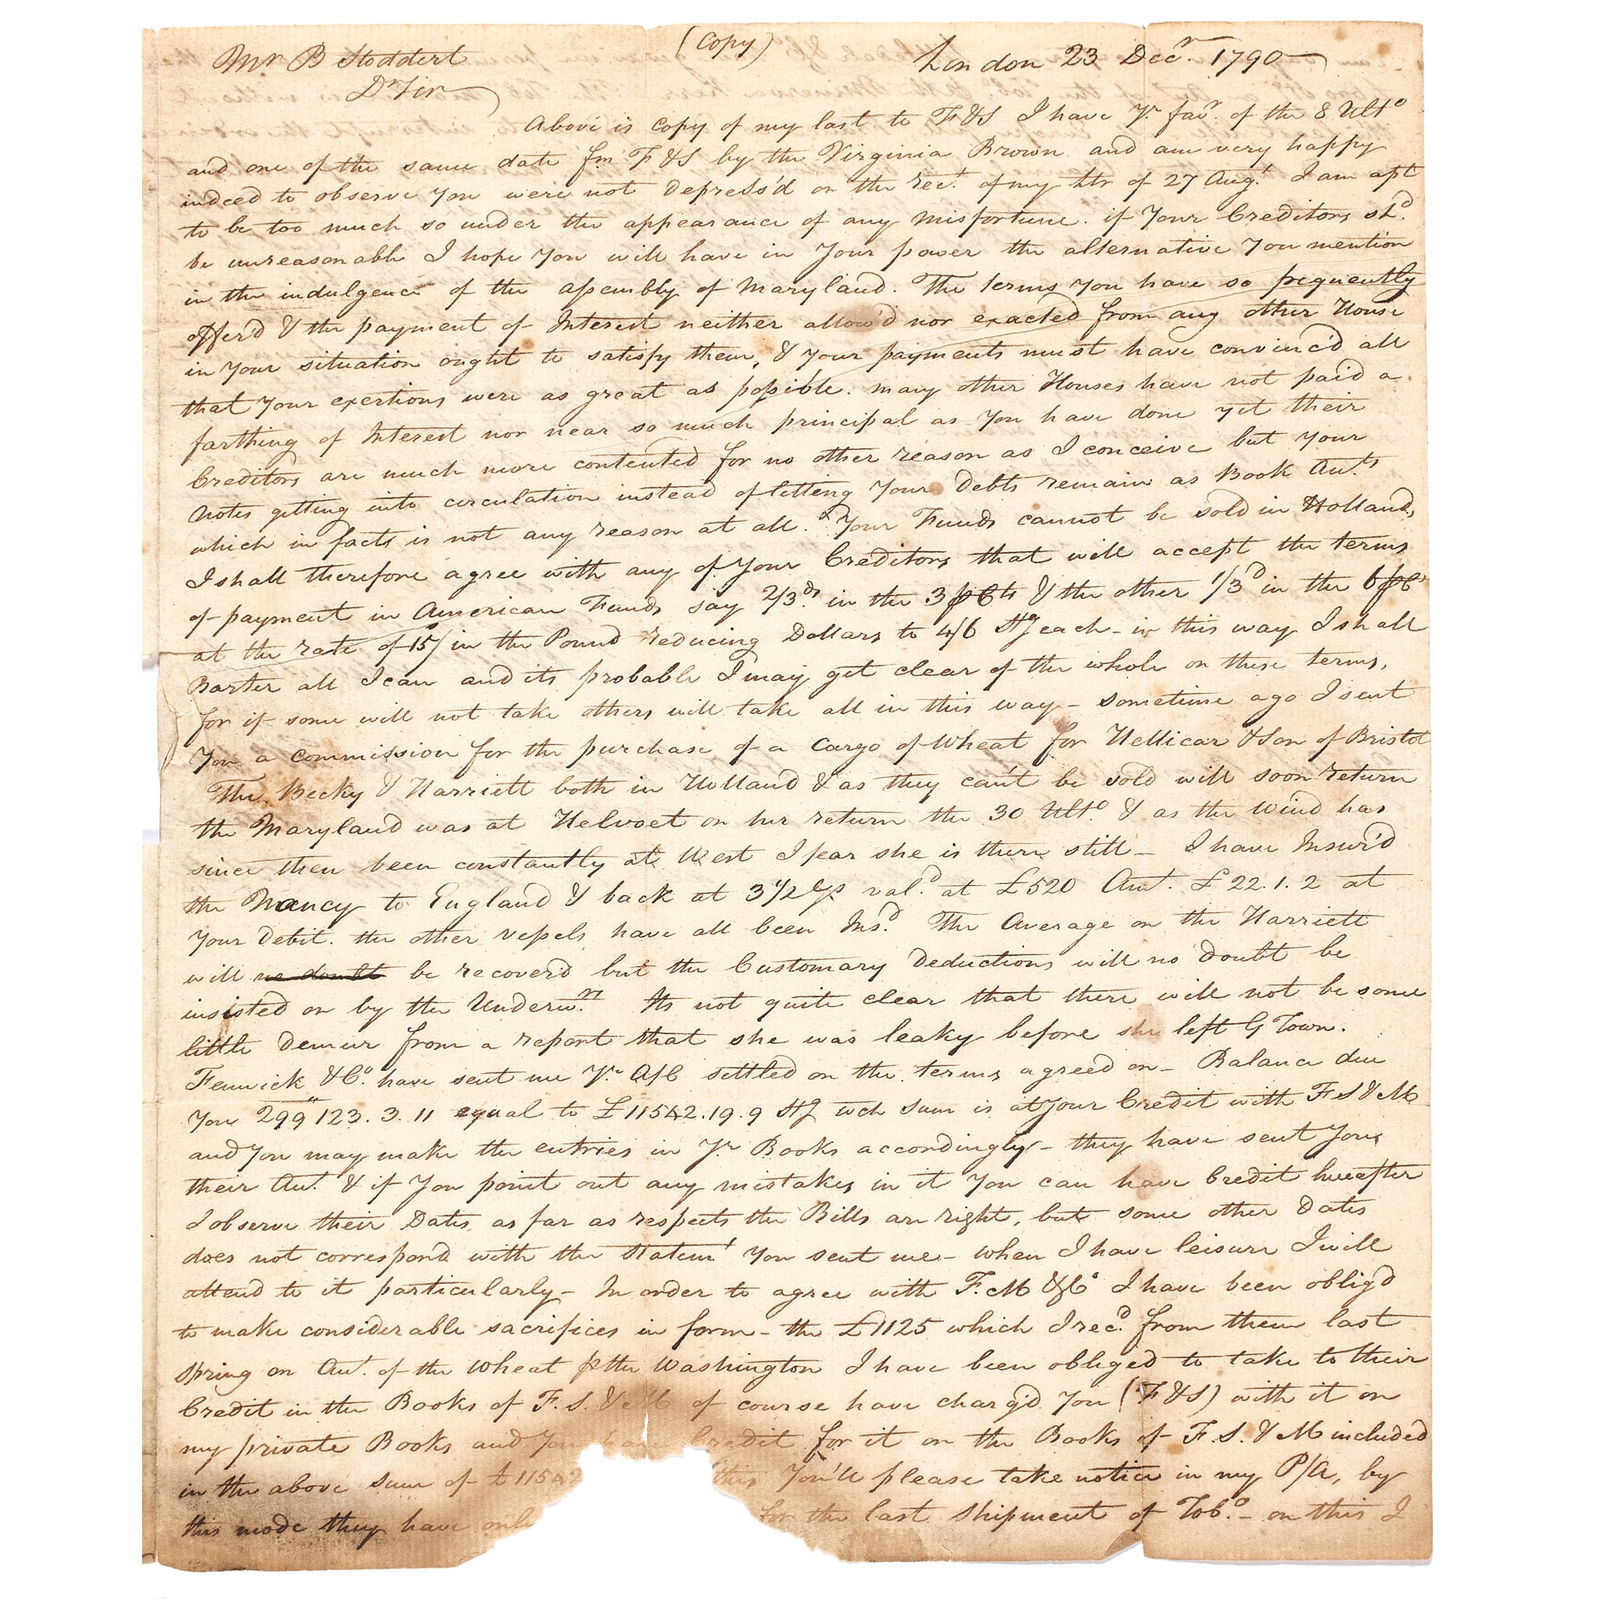 (Copy)
Mr B Stoddert London 23 Decr. 1790
Dr Sir
Above is copy of my last to F&S I have Yr. favr. of the 8 Ulto
and one of the same date fm F&S by the Virginia Brown and am very happy
indeed to observe You were not depress'd on the rect. of my ltr of 27 Augt. I am apt
to be too much so under the appearance of any misfortune. if Your Creditors shd.
be unreasonable I hope You will have in Your power the alternative You mention
in the indulgence of the assembly of Maryland. The terms You have so frequently
offer'd & the payment of Interest neither allow'd nor exacted from any other House
in Your situation ought to satisfy them, & Your payments must have convinc'd all
that Your exertions were as great as possible. many other Houses have not paid a
farthing of Interest nor near so much principal as You have done yet their
Creditors are much more contented for no other reason as I conceive but Your
Notes getting into circulation instead of letteng Your Debts remain as Book Auts
which in facts is not any reason at all. Your Funds cannot be sold in Holland,
I shall therefore agree with any of Your Creditors that will accept the terms
of payment in American Funds say 2/3ds. in the 3 pCts & the other 1/3d in the 6 pCt
at the rate of 15/ in the Pound reducing Dollars to 4/6 Stg each - in this way I shall
Barter all I can and its probable I may get clear of the whole on these terms,
for if some will not take others will take all in this way - sometime ago I sent
You a commission for the purchase of a cargo of Wheat for Hellicar & Son of Bristol
The Becky & Harriett both in Holland & as they can't be sold will soon return
the Maryland was at Helvoet on her return the 30 Ulto & as the Wind has
since then been constantly at West I fear she is there still - I have Insur'd
the Nancy to England & back at 3 1/2 val.d at £520 Amt. £22.1.2 at
Your Debit. the other vessels have all been Insd. The Average on the Harriett
will no doubt be recover'd but the Customary Deductions will no doubt be
insisted on by the Underwrs. Its not quite clear that there will not be some
little demur from a report that she was leaky before she left G Town.
Fenwick & Co. have sent me Yr A/C settled on the terms agreed on - Balance due
You 299"123.3.11 equal to £11542.19.9 Stg wch sum is at Your Credit with F S & M
and You may make the entries in Yr Books accordingly - they have sent You
their Aut. & if You point out any mistakes in it You can have Credit hereafter
I observe their Dates as far as respects the Bills are right, but some other Dates
does not correspond with the Statemt You sent me - when I have leisure I will
attend to it particularly - In order to agree with F. M & Co I have been oblig'd
to make considerable sacrifices in form - the £1125 which I recd. from them last
Spring on Aut. of the Wheat p the Washington I have been obliged to take to their
Credit in the Books of F. S. & M of course have charg'd You (F&S) with it on
my private Books and You have Credit for it on the Books of F. S. & M included
in the above sum of £11542 this You'll please take notice in my P/A, by
this mode they have only for the last Shipment of Tobo. - on this I